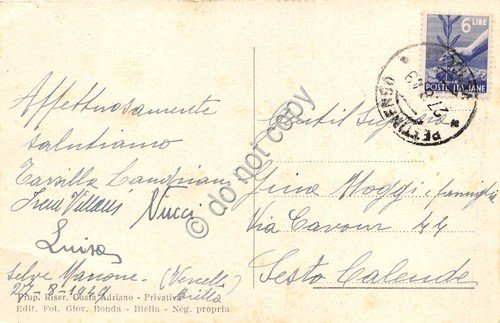 Affettuosamente
salutiamo
Tarsilla Landriani
Irene Villani Nucci
Luisa
Selve Marcone - (Vercelli)
27-8-1949 Biella
Prop. Riser. Costa Adriano - Privativa
Edit. Fot. Giov. Bonda - Biella - Neg. propria
6 LIRE
POSTE ITALIANE
PETTINENGO
27.8.49
Gentil Signora
Gina Moggi e famiglia
Via Cavour 44
Sesto Calende
© do not copy